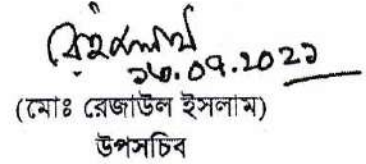 ১৬.০৭.২০২১
(মোঃ রেজাউল ইসলাম)
উপসচিব